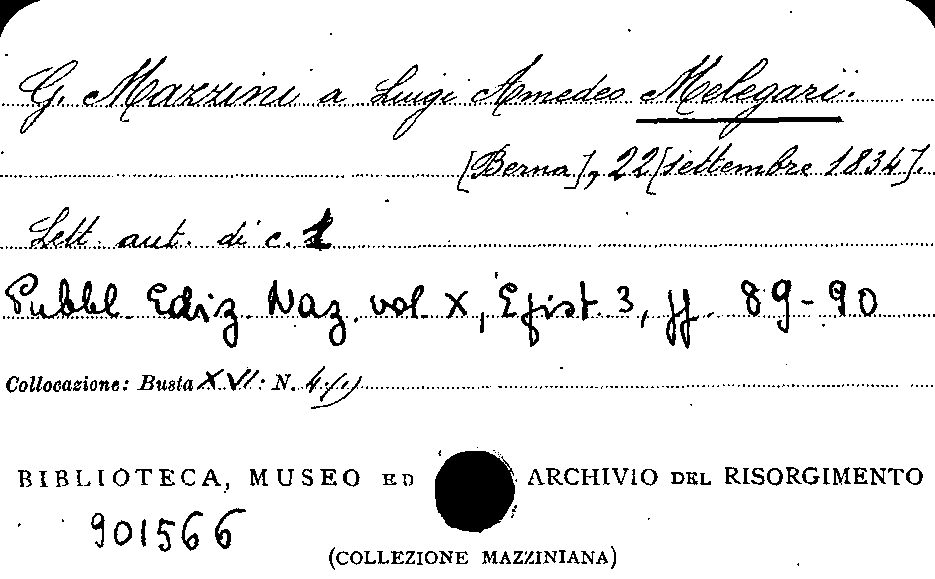 G. Mazzini a Luigi Amedeo Melegari.
[Berna], 22 [settembre 1834].
Lett. aut. di c. 1
Pubbl. Ediz. Naz. vol. X, Epist. 3, pp. 89-90
Collocazione: Busta XVI: N.
BIBLIOTECA, MUSEO ED ARCHIVIO DEL RISORGIMENTO
901566
(COLLEZIONE MAZZINIANA)